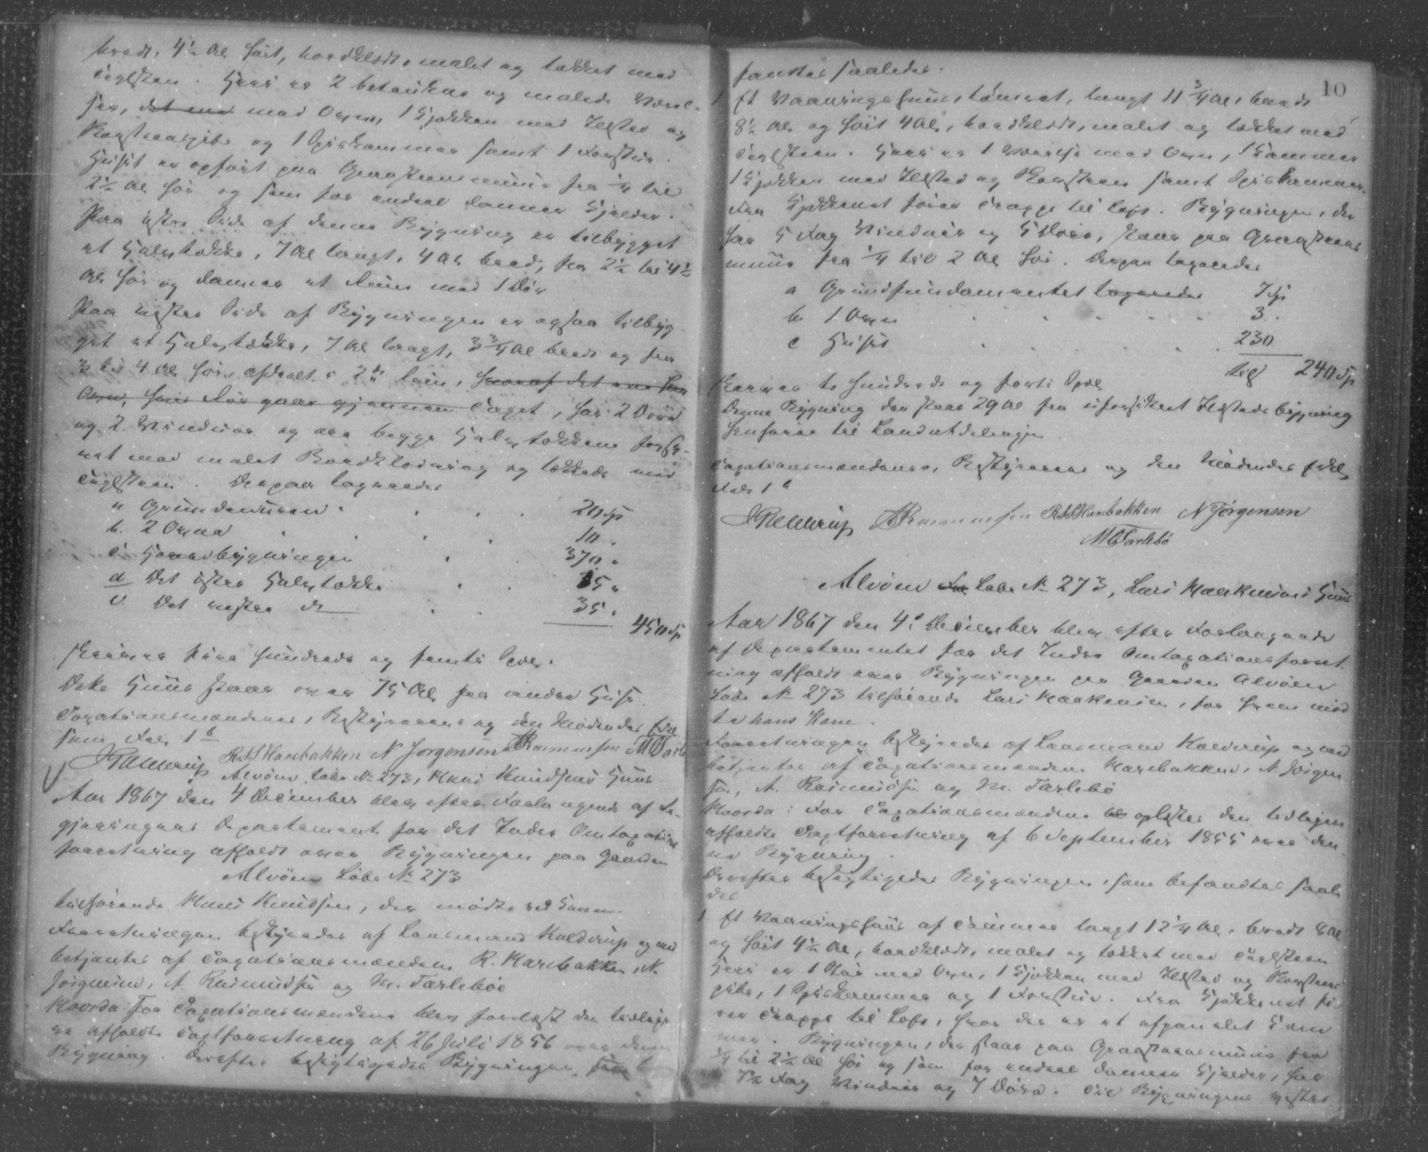 bredt, 4½ Al høit, bordklædt, malet og tækket med
Teglsteen. Heri er 2 betrukne og malede Værel-
ser, det ene med Ovn, 1 Kjøkken med Ildsted og
Skorsteenspibe og 1 Spiskammer samt 1 Forstue.
Huset er opført paa Graasteensmuur fra ¼ til
2½ Al høi og som for endeel danner Kjelder.
Paa østre Side af denne Bygning er tilbygget
et Halvtække, 7 Al langt, 4 Al bred, fra 2½ til 4½
Al høi og danner et Rum med 1 Dør
Paa vestre Side af Bygningen er ogsaa tilbyg-
get et Halvtække, 7 Al langt, 3¾ Al bredt og fra
2 til 4 Al høi, afdeelt i 2de Rum, hvoraf det ene har
Ovn, hvis Rør gaar gjennem Taget, har 2 Døre
og 2 Vinduer og ere begge Halvtækkene forsy-
net med malet Bordklædning og tækkede med
Teglsteen. Derpaa taxeredes
a Grundmuren . . . . 20 Sp
b. 2 Ovne . . . . 10 „
c Hovedbygningen . . 370 „
d Det østre Halvtække . . 15 „
e Det vestre do . . 35 „
450 Sp
skriver fire hundrede og femti Spd.
Dette Huus staar over 75 Al fra andre Huse.
Taxationsmændenes, Bestyrerens og den Mødendes Ed
som Fol. 1 b
J Kolderup R. S. Harebakken N Jørgensen A Rasmussen M Tarleb
Alvøen Løbe No 273, Hans Knudsens Huus
Aar 1867 den 4 December blev efter Forlangende af Re-
gjeringens Departement for det Indre Omtaxations
forretning afholdt over Bygningen paa Gaarden
Alvøen Løbe No 273
tilhørende Hans Knudsen, der mødte ved Samme.
Forretningen bestyredes af Lensmand Kolderup og med
betjentes af Taxationsmændene R. Harebakken, N.
Jørgensen, A Rasmussen og M. Tarlebøe
Hvorda: For Taxationsmændene blev forelæst den tidlige-
re afholdte Taxtforretning af 26 Juli 1856 over denne
Bygning. Derefter besigtigedes Bygningen, som b
10
fandtes saaledes.
1 Et Vaaningshuus, tømret, langt 11¾ Al, bredt
8½ Al og høit 4 Al, bordklædt, malet og tækket med
Teglsteen. Heri er 1 Værelse med Ovn, 1 Kammer
1 Kjøkken med Ildsted og Skorsteen samt Spiskammer.
Fra Kjøkkenet fører Trappe til Loft. Bygningen, der
har 5 Fag Vinduer og 5 Døre, staar paa Graasteens
muur fra ¼ til 2 Al høi. Derpaa taxeredes
a Grundfundamentet taxeredes 7 Sp
b 1 Ovn . . . . . 3 .
c Huset . . . . . 230
tils 240 Sp
skriver to hundrede og forti Spd
Denne Bygning der staar 29 Al fra uforsikret Ildstedsbygning
henføres til Landafdelingen.
Taxationsmændenes, Bestyrerens og den Mødendes Eed
Fol. 1 b
J Kolderup A Rasmussen R. S. Harebakken N Jørgensen
M Tarlebø
Alvøen Løbe No 273, Lars Haakensens Huus
Aar 1867 den 4de December blev efter Forlangende
af Departementet for det Indre Omtaxationsforret
ning afholdt over Bygningen paa Gaarden Alvøen
Løbe No 273 tilhørende Lars Haakensen, for hvem mød
te hans Kone.
Forretningen bestyredes af Lensmand Kolderup og med
betjentes af Taxationsmændene Harebakken, N. Jørgen-
sen, A. Rasmussen og M. Tarlebø
Hvorda: For Taxationsmændene oplæstes den tidligere
afholdte Taxtforretning af 6 September 1855 over den-
ne Bygning.
Derefter besigtigedes Bygningen, som befandtes saale
des
1 Et Vaaningshuus af Tømmer langt 12¼ Al, bredt 8 Al
og høit 4½ Al, bordklædt, malet og tækket med Teglsteen
Heri er 1 Stue med Ovn, 1 Kjøkken med Ildsted og Skorsteens
pibe, 1 Spiskammer og 1 Forstue. Fra Kjøkkenet fø-
rer Trappe til Loft, hvor der er et afpanelet Kam
mer. Bygningen, der staar paa Graasteensmuur fra
¼ til 2½ Al høi og som for endeel danner Kjelder, har
5½ Fag Vinduer og 7 Døre. Ved Bygningens vestre